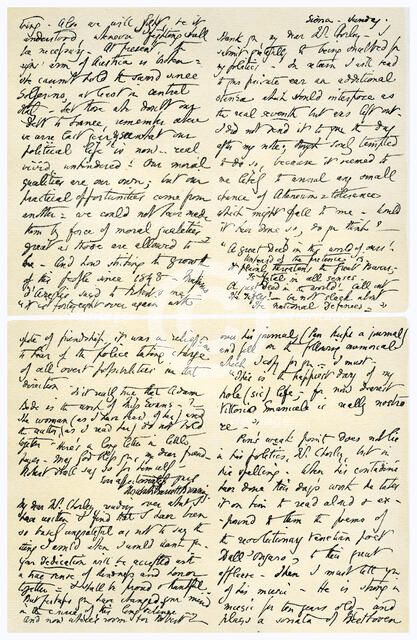 being. Also we will fight, be it
understood, whenever fighting shall
be necessary. At present the
right arm of Austria is broken =
she cannot hold the sword since
Solferino, at least in central
Italy. Let those who doubt our
debt to France, remember where
we were last year, & see what our
political life is now – real
vivid, unhindered! Our moral
qualities are our own; but our
practical opportunities come from
another = we could not have made
them by force of moral qualities,
great as those are allowed to
be. And how striking the growth
of this people since 1848. Massimo
d'Azeglio said to Robert & me,
'it is
Siena – Sunday.
Thank you my dear Mr. Chorley – I
submit gratefully to being snubbed for
my politics. In return I will send
to your private ear an additional
stanza which should interpose as
the real seventh but was left out.
I did not send it to you the day
after my note, though sorely tempted
to do so, because it seemed to
me likely to annul any small
chance of Athenaeum tolerance
which might fall to me. Would
it have done so, do you think?
"A great deed in this world of ours!
Unheard of the pretence is.
It plainly threatens the Great Powers,
Is fatal in all senses.
A just deed in the world! call out
The rifles! – be not slack about
The national defences."
state of friendship. It was a relief
to hear of the police taking charge
of all overt possibilities in that
direction.
Is it really true that Adam
Bede is the work of Miss Evans?
The woman (as I have heard of her) and
the author (as I read her) do not hold
together – Here's a long letter
May God bless you, my dear friend
Robert shall say so for himself
Yours affectionately ever
Elizabeth Barrett Browning
My dear Mr. Chorley, reading over what I
have written I find that I have been
so basely ungrateful as not to say the
thing I would when I would thank you
your dedication will be accepted with
a true sense of kindness and honour
together – I shall be proud & thankful –
But perhaps you have changed your mind
in the course of this long silence
and now where's room for Robert?
over his journal (Pen keeps a journal
and fell on the following memorial
which I copy for you – I must.
"This is the happiest day of my
hole (sic) life, for now dearest
Vittorio Emanuele is really nostro
re."
Pen's weak point does not lie
in his politics, Mr. Chorley, but in
his spelling. When his contadini
have done their day's work he takes
it on him to read aloud & ex-
pound to them the poems of
the revolutionary Venetian poet
Dall' Ongaro, to their great
applause. Then I must tell you
of his music. He is strong in
music for ten years old, and
plays a sonata of Beethoven